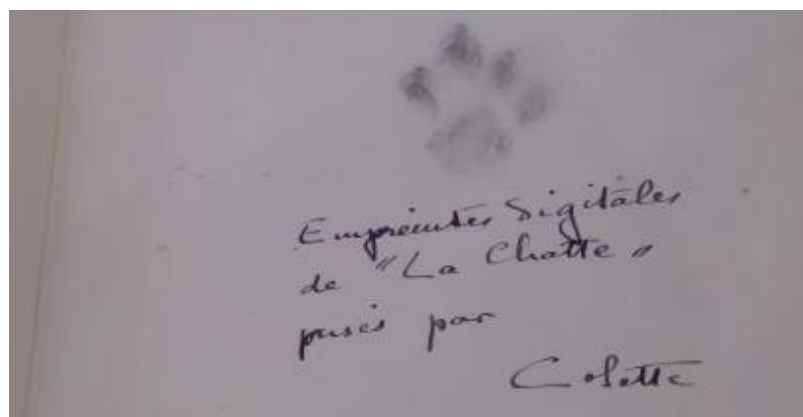 Empreintes digitales
de "La Chatte"
prises par
Colette